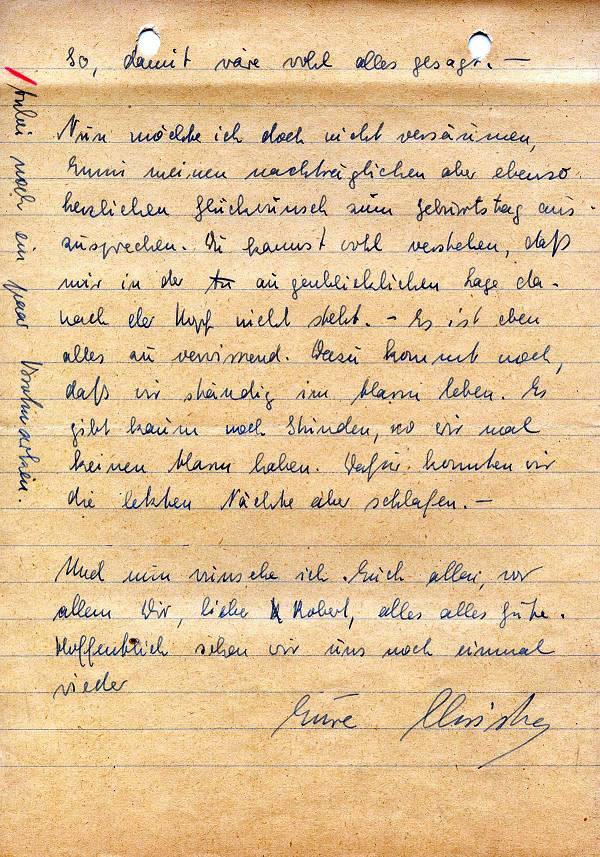 So, damit wäre wohl alles gesagt. —
Nun möchte ich doch nicht versäumen,
Emmi meinen nachträglichen aber ebenso
herzlichen Glückwunsch zum Geburtstag aus-
zusprechen. Du kannst wohl verstehen, daß
mir in der augenblicklichen Lage da-
nach der Kopf nicht steht. - Es ist eben
alles zu verwirrend. Dazu kommt noch,
daß wir ständig im Alarm leben. Es
gibt kaum noch Stunden, wo wir mal
keinen Alarm haben. Dafür konnten wir
die letzten Nächte aber schlafen. —
Und nun wünsche ich Euch allen, vor
allem Dir, lieber Robert, alles alles Gute.
Hoffentlich sehen wir uns noch einmal
wieder
Eure Christa
Anbei noch ein paar